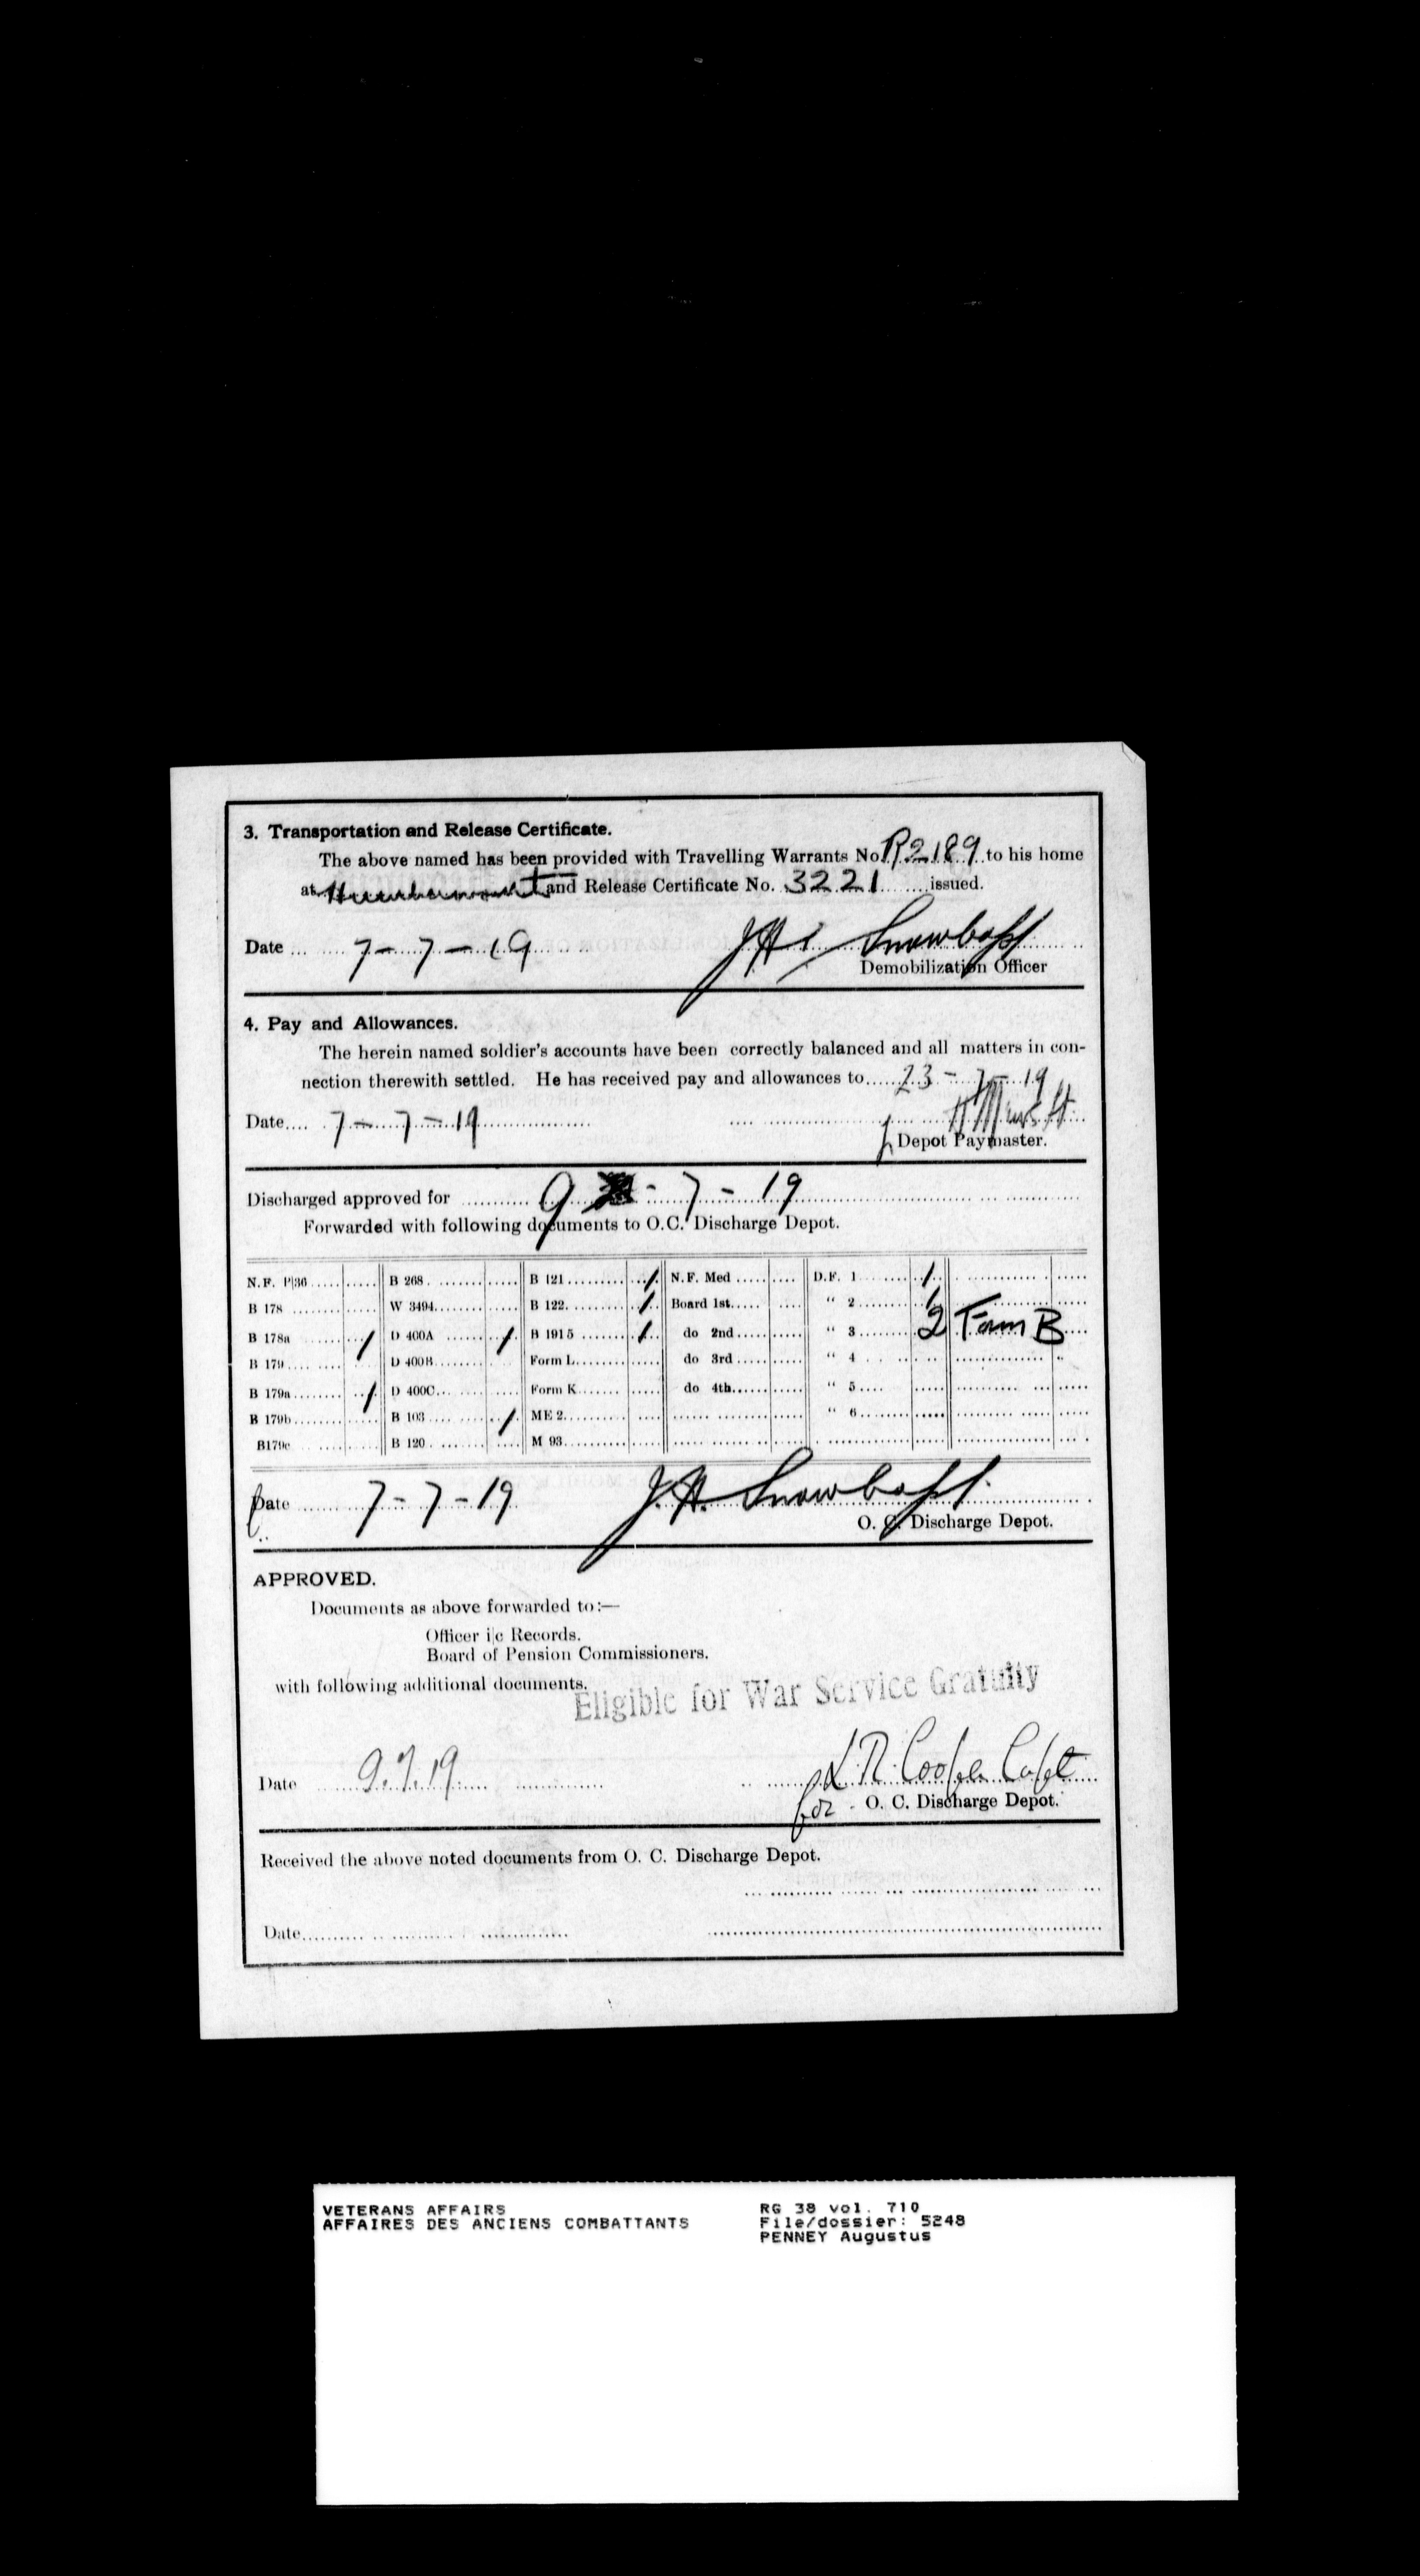 3. Transportation and Release Certificate.
The above named has been provided with Travelling Warrants No. R2189 to his home
at and Release Certificate No. 3221 issued.
Date 7-7-19 J.A. Snowball
Demobilization Officer
4. Pay and Allowances.
The herein named soldier's accounts have been correctly balanced and all matters in con-
nection therewith settled. He has received pay and allowances to 23-7-19
Date 7-7-19
Depot Paymaster.
Discharged approved for 9 -7-19
Forwarded with following documents to O.C. Discharge Depot.
N.F. P|36 B 268 B 121 / N.F. Med D.F. 1 /
B 178 W 3494 B 122 / Board 1st " 2 /
B 178a / D 400A / B 1915 / do 2nd " 3 2 Form B
B 179 D 400B Form L do 3rd " 4
B 179a / D 400C Form K do 4th " 5
B 179b B 103 / ME 2 " 6
B179c B 120 M 93
Date 7-7-19 J.A. Snowball
O. C. Discharge Depot.
APPROVED.
Documents as above forwarded to:—
Officer i|c Records.
Board of Pension Commissioners.
with following additional documents.
Eligible for War Service Gratuity
Date 9.7.19 Cooper Capt
for O. C. Discharge Depot.
Received the above noted documents from O. C. Discharge Depot.
Date
VETERANS AFFAIRS RG 38 vol. 710
AFFAIRES DES ANCIENS COMBATTANTS File/dossier: 5248
PENNEY Augustus